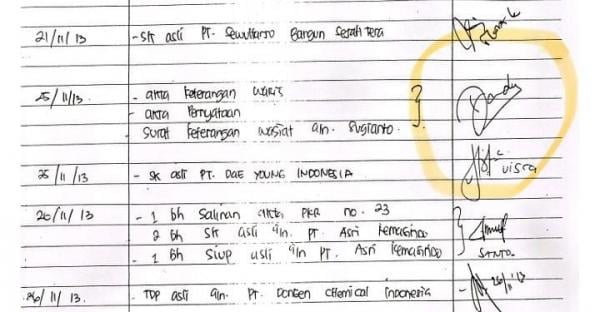 21/11/13 - SK asli PT. Sewuttarto Bangun Sejah Tera
25/11/13. - akta keterangan waris
- akta Pernyataan
Surat keterangan wasiat a/n. Sugianto.
25/11/13 - SK asli PT. DAE YOUNG INDONESIA VISCA
26/11/13 - 1 bh Salinan akta PKR no. 23
2 bh SK asli a/n. PT. Asri Kemasindo
- 1 bh SIUP asli a/n PT. Asri Kemasindo SANTO.
26/11/13. - TDP asli a/n. PT. Dongen Chemical Indonesia 26/11'13